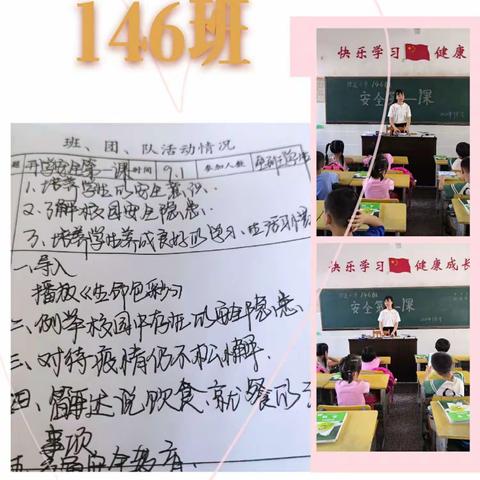 146班
班、团、队活动情况
题 开学安全第一课 时间 9.1 参加人数
1.培养学生的安全意识.
2.了解校园安全隐患.
3、培养学生养成良好的学习、生活习惯
一、导入
播放《生命
二、例举校园中存在的安全隐患.
三、对待疫情仍不松懈.
四、简述说饮食、就餐的
事项
快乐学习 健康
146班
安全第一课
快乐学习 健康成长
146班
安全第一课